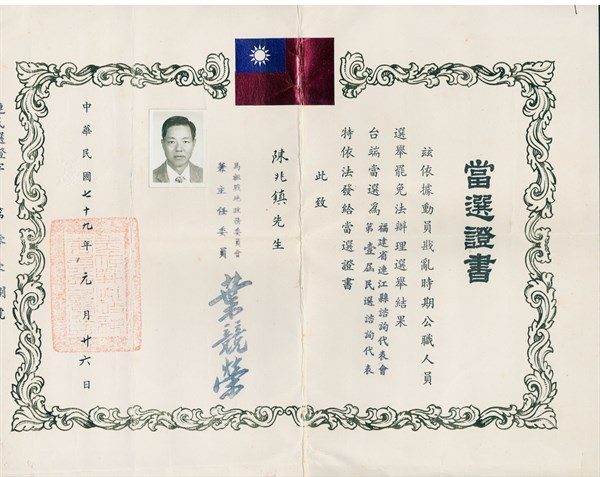 當選證書
茲依據動員戡亂時期公職人員
選舉罷免法辦理選舉結果
台端當選為福建省連江縣諮詢代表會
第壹屆民選諮詢代表
特依法發給當選證書
此致
陳兆鎮先生
馬祖戰地政務委員會
兼主任委員
葉競榮
中華民國七十九年元月廿六日